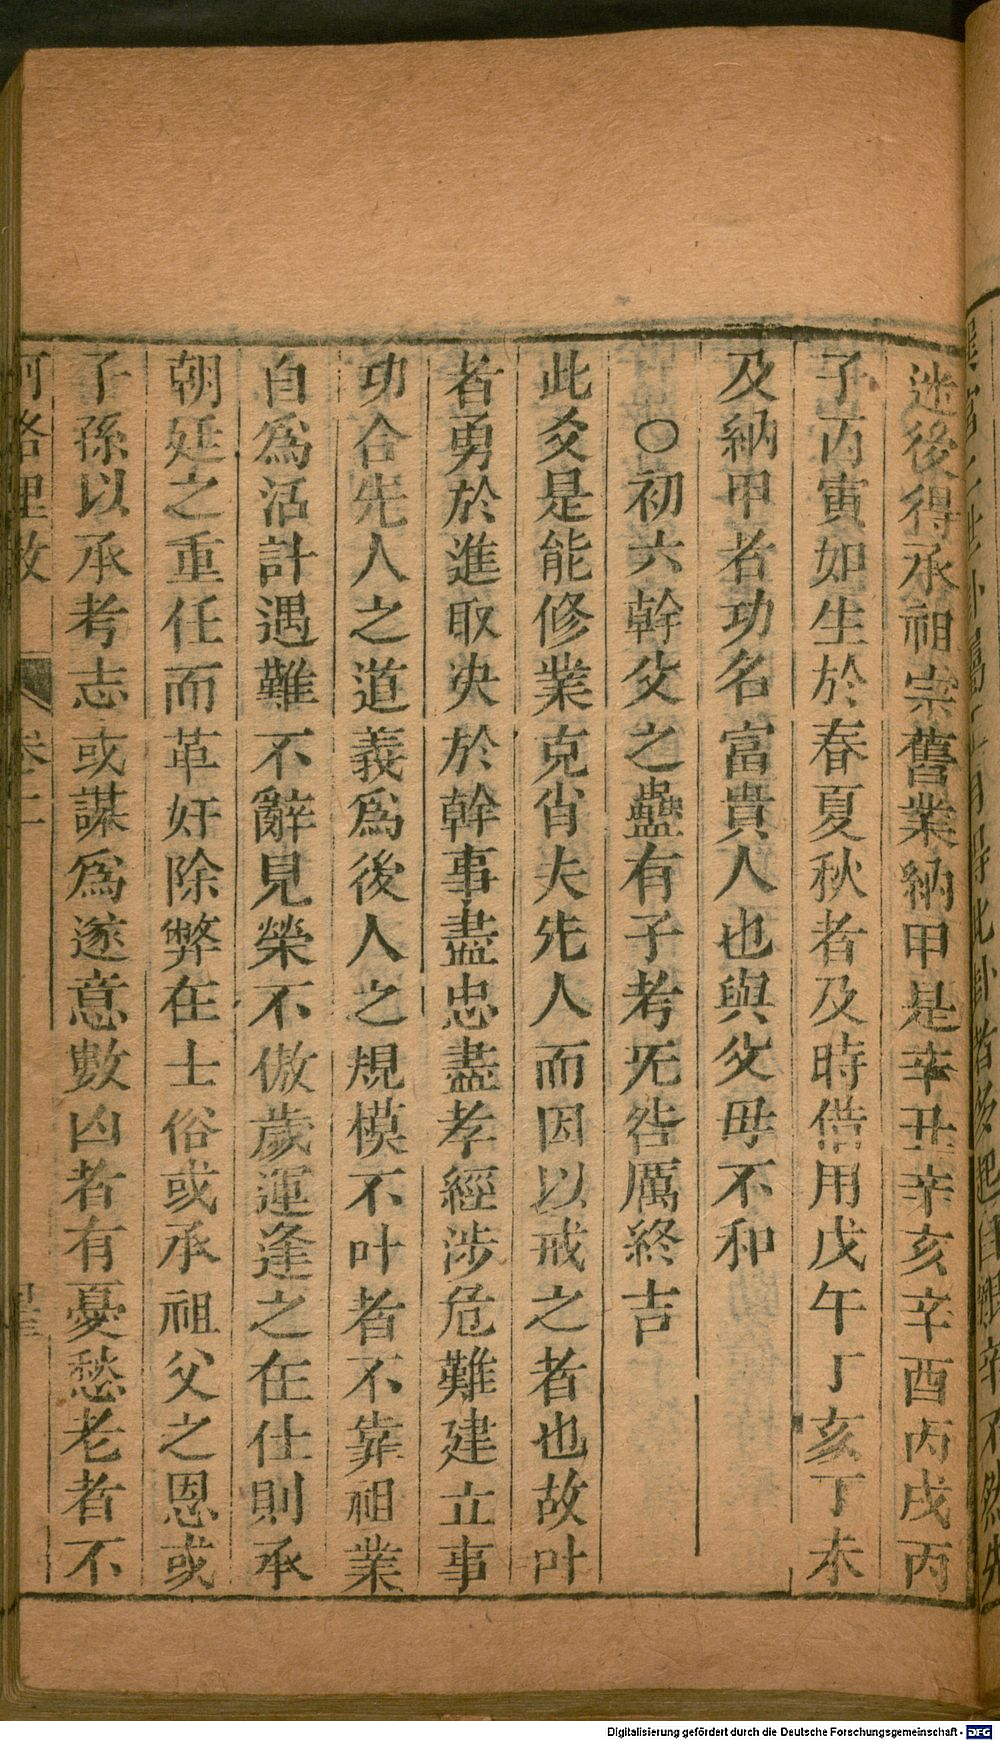 迷後得承祖宗舊業納甲是辛丑辛亥辛酉丙戌丙
子丙寅如生於春夏秋者及時借用戊午丁亥丁未
及納甲者功名富貴人也與父母不和
○初六幹父之蠱有子考无咎厲終吉
此爻是能修業克肖夫先人而因以戒之者也故叶
者勇於進取决於幹事盡忠盡孝經涉危難建立事
功合先人之道義爲後人之規模不叶者不靠祖業
自爲活計遇難不辭見榮不傲歲運逢之在仕則承
朝廷之重任而革奸除弊在士俗或承祖父之恩或
子孫以承考志或謀爲遂意數凶者有憂愁老者不
河洛理數 卷二
Digitalisierung gefördert durch die Deutsche Forschungsgemeinschaft - DFG